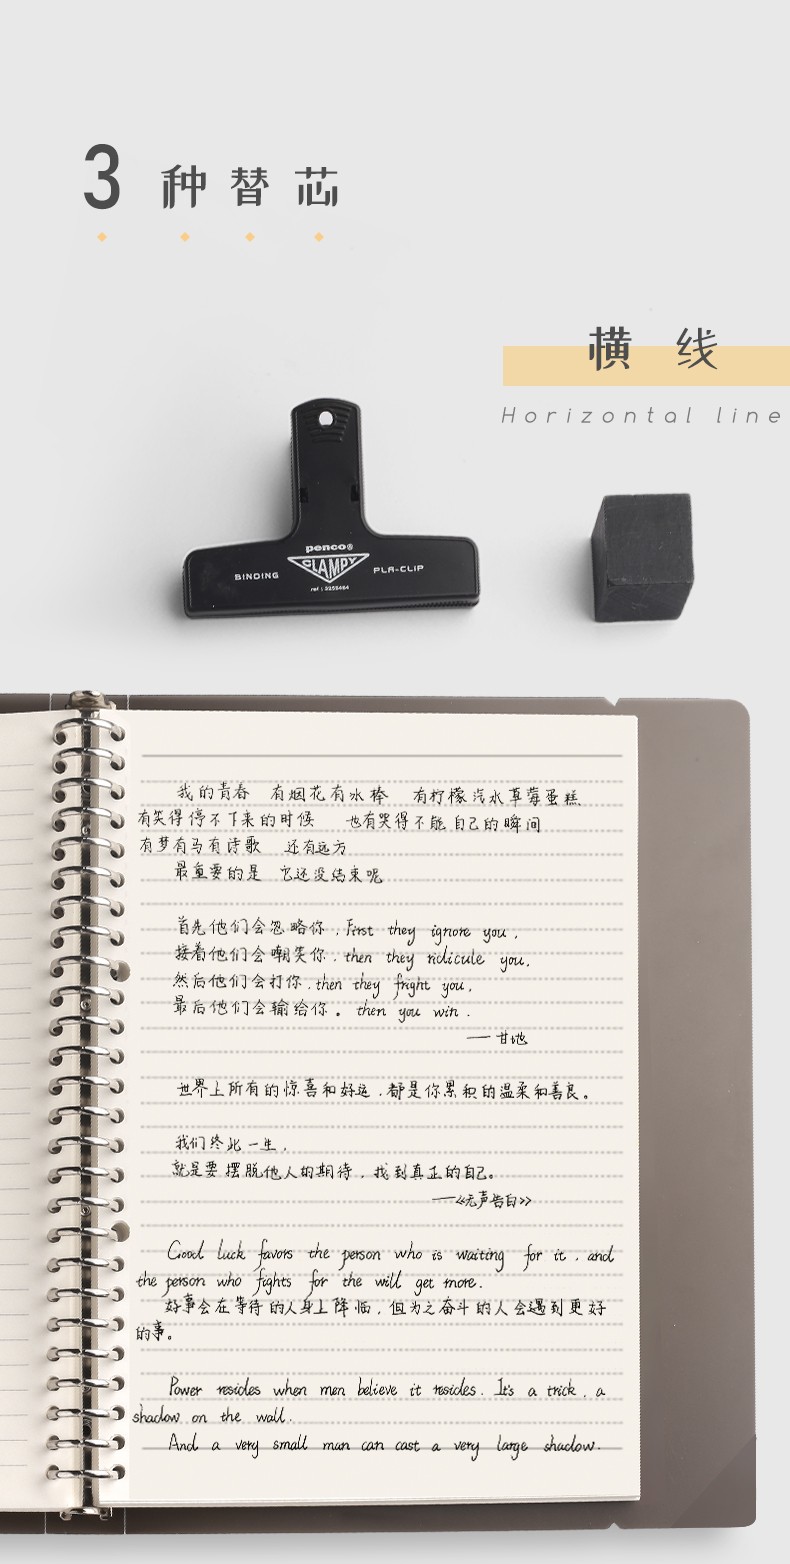 3 种替芯
横线
Horizontal line
penco®
CLAMPY
BINDING
PLA-CLIP
我的青春 有烟花有水棒 有柠檬汽水草莓蛋糕
有笑得停不下来的时候 也有哭得不能自己的瞬间
有梦有马有诗歌 还有远方
最重要的是 它还没结束呢
首先他们会忽略你,First they ignore you,
接着他们会嘲笑你,then they ridicule you,
然后他们会打你,then they fright you,
最后他们会输给你。then you win.
——甘地
世界上所有的惊喜和好运,都是你累积的温柔和善良。
我们终此一生,
就是要摆脱他人的期待,找到真正的自己。
——《无声告白》
Good luck favors the person who is waiting for it, and
the person who fights for the will get more.
好事会在等待的人身上降临,但为之奋斗的人会遇到更好
的事。
Power resides when men believe it resides. It's a trick, a
shadow on the wall.
And a very small man can cast a very large shadow.